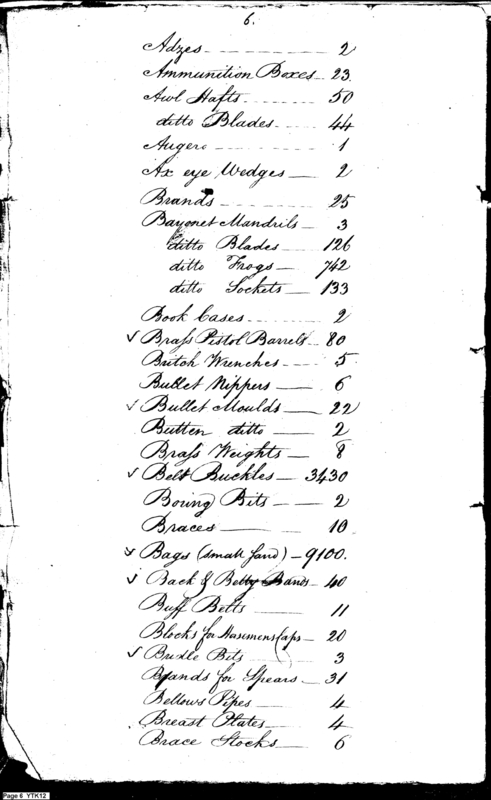 6.
Adzes 2
Ammunition Boxes 23
Awl Hafts 50
ditto Blades 44
Augers 1
Ax eye Wedges 2
Brands 25
Bayonet Mandrils 3
ditto Blades 126
ditto Frogs 742
ditto Sockets 133
Book Cases 2
✓ Braſs Pistol Barrels 80
Britch Wrenches 5
Bullet Nippers 6
✓ Bullet Moulds 22
Button ditto 2
Braſs Weights 8
✓ Belt Buckles 3430
Boring Bits 2
Braces 10
✓ Bags (small sand) 9100.
✓ Back & Belly Bands 40
Buff Belts 11
Blocks for Hasemens Caps 20
✓ Bridle Bits 3
Bands for Spears 31
Bellows Pipes 4
Breast Plates 4
Brace Stocks 6
Page 6 YTK12